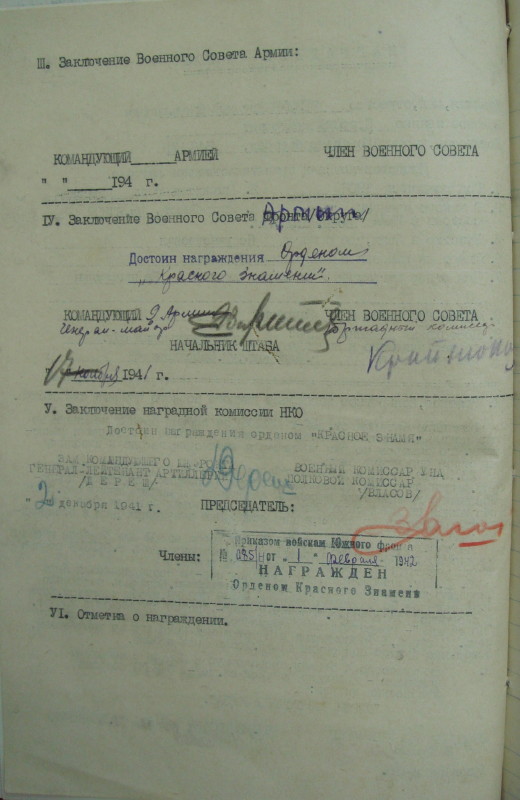 Ш. Заключение Военного Совета Армии:
КОМАНДУЮЩИЙ______АРМИЕЙ ЧЛЕН ВОЕННОГО СОВЕТА
" "______194 г.
IУ. Заключение Военного Совета фронта/округа/ Армии
Достоин награждения Орденом
"Красного знамения".
КОМАНДУЮЩИЙ 9 Армии ЧЛЕН ВОЕННОГО СОВЕТА
Генерал-майор
НАЧАЛЬНИК ШТАБА
17 ноября 1941 г.
У. Заключение наградной комиссии НКО
Достоин награждения орденом "КРАСНОЕ ЗНАМЯ"
ЗАМ КОМАНДУЮЩЕГО ВОЕННЫЙ КОМИССАР
ГЕНЕРАЛ-ЛЕЙТЕНАНТ АРТИЛЛЕРИИ ПОЛКОВОЙ КОМИССАР
/ДЕРЕШ/ /ВЛАСОВ/
"2 декабря 1941 г. ПРЕДСЕДАТЕЛЬ:
Приказом войскам Южного фронта
Члены: № 035/н от "1" февраля 1942
НАГРАЖДЕН
Орденом Красного Знамени
УI. Отметка о награждении.